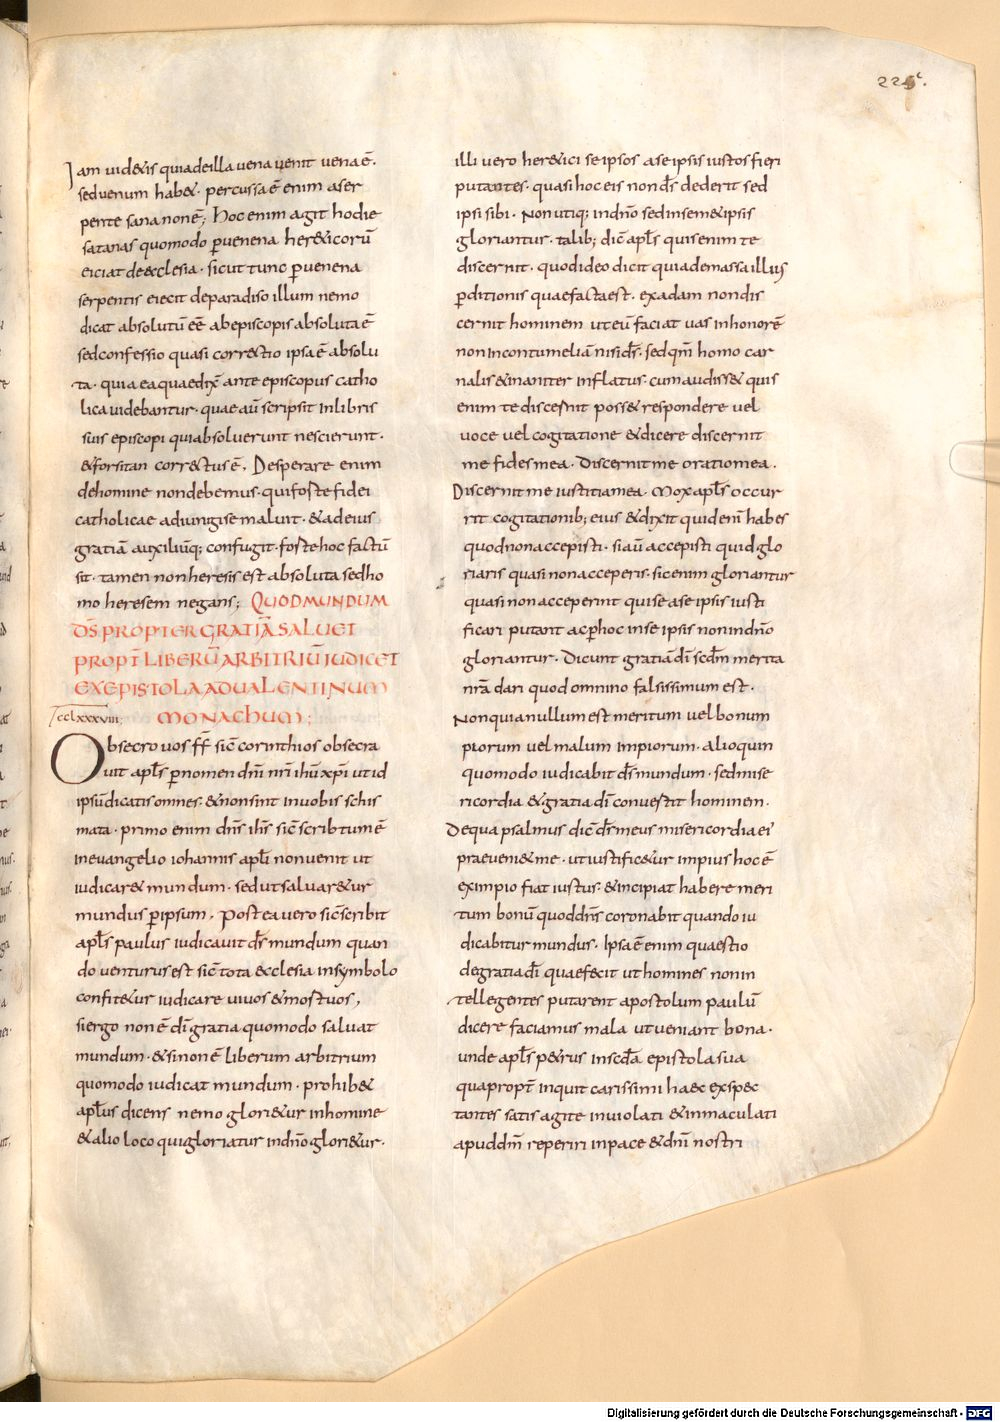 225.
Iam uidetis quia de illa uena uenit uena ē.
sed uenum habet. percussa ē enim a ser
pente sana non ē; Hoc enim agit hodie
satanas quomodo p uenena hereticorū
eiciat de ecclesia. sicut tunc p uenena
serpentis eiecit de paradiso illum nemo
dicat absolutū eē ab episcopis absoluta ē
sed confessio quasi correctio ipsa ē absolu
ta. quia ea quae dix̄ ante episcopus catho
lica uidebantur. quae aū scripsit in libris
suis episcopi qui absoluerunt nescierunt.
& forsitan correctus ē. Desperare enim
de homine non debemus. qui foste fidei
catholicae adiungi se maluit. & ad eius
gratiā auxiliūq; confugit. foste hoc factū
sit. tamen non heresis est absoluta sed ho
mo heresem negans; QUOD MUNDUM
D̄S PROPTER GRATIĀ SALUET
PROPT̄ LIBERŪ ARBITRIŪ IUDICET
EX EPISTOLA AD UALENTINUM
MONACHUM;
cclxxxviii;
Obsecro uos ff̄ sic̄ corinthios obsecra
uit apl̄s p nomen dn̄i nr̄i ihū xp̄i ut id
ipsū dicatis omnes. & non sint in uobis schis
mata. primo enim dn̄s ih̄s sic̄ scribtum ē
in euangelio iohannis apl̄i non uenit ut
iudicar& mundum. sed ut saluar&ur
mundus p ipsum. Post ea uero sic̄ scribit
apl̄s paulus iudicauit d̄s mundum quan
do uenturus est sic̄ tota ecclesia in symbolo
confit&ur iudicare uiuos & mostuos,
si ergo non ē dī gratia quomodo saluat
mundum. & si non ē liberum arbitrium
quomodo iudicat mundum. prohib&
apl̄us dicens nemo glori&ur in homine
& alio loco qui gloriatur in dn̄o glori&ur.
illi uero her&ici se ipsos a se ipsis iustos fieri
putantes. quasi hoc eis non d̄s dederit sed
ipsi sibi. Non utiq; in dn̄o sed in sem&ipsis
gloriantur. talib; dic̄ apl̄s quis enim te
discernit. quod ideo dicit quia de massa illius
pditionis quae facta est. ex adam non dis
cernit hominem ut eū faciat uas in honorē
non in contumeliā nisi d̄s. sed qm̄ homo car
nalis & inaniter inflatus. cum audiss& quis
enim te discesnit poss& respondere uel
uoce uel cogitatione & dicere discernit
me fides mea. Discernit me oratio mea.
Discernit me iustitia mea. Mox apl̄s occur
rit cogitationib; eius & dixit quid enī habes
quod non accepisti. si aū accepisti quid glo
riaris quasi non acceperis. sic enim gloriantur
quasi non acceperint qui se a se ipsis iusti
ficari putant ac p hoc in se ipsis non in dn̄o
gloriantur. Dicunt gratiā dī scdm̄ merita
nr̄a dari quod omnino falsissimum est.
Non quia nullum est meritum uel bonum
piorum uel malum impiorum. alioquin
quomodo iudicabit d̄s mundum. sed mise
ricordia & gratia dī conuestit hominem.
De qua psalmus dic̄ d̄s meus misericordia ei'
praeueni& me. ut iustific&ur impius hoc ē
ex impio fiat iustus. & incipiat habere meri
tum bonū quod dn̄s coronabit quando iu
dicabitur mundus. Ipsa ē enim quaestio
de gratia dī quae fecit ut homines non in
tellegentes putarent apostolum paulū
dicere faciamus mala ut ueniant bona.
unde apl̄s p&rus in scdā epistola sua
quapropt̄ inquit carissimi haec exspec
tantes satis agite inuiolati & inmaculati
apud dm̄ reperiri in pace & dn̄i nostri
Digitalisierung gefördert durch die Deutsche Forschungsgemeinschaft - DFG